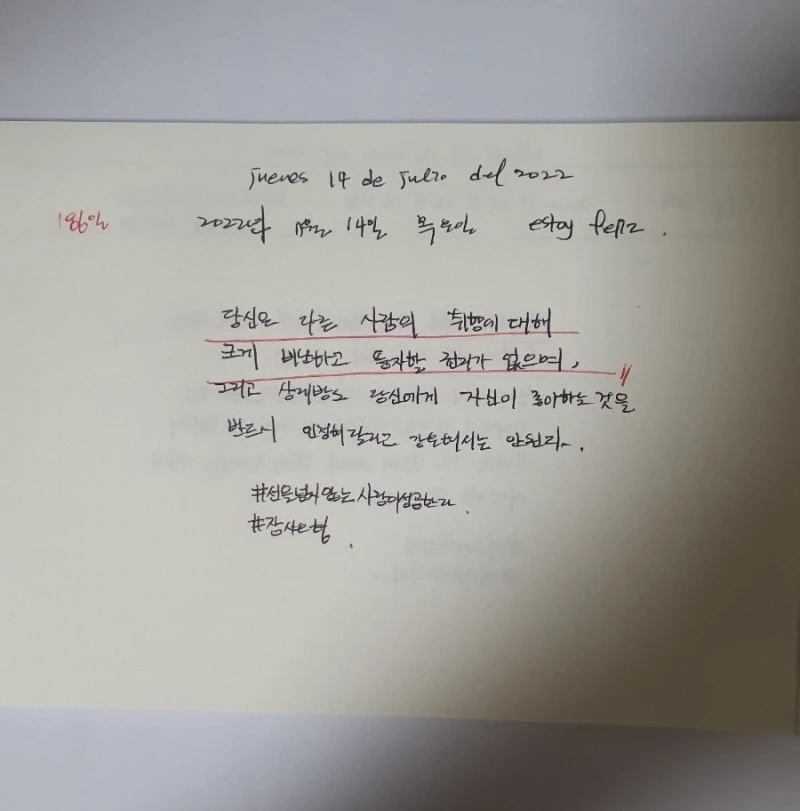 jueves 14 de julio del 2022
186일 2022년 7월 14일 목요일 estoy feliz.
당신은 다른 사람의 취향에 대해
크게 비난하고 질 권리가 없으며,
그리고 상대방도 당신에게 자신이 좋아하는 것을
반드시 인정해 달라고 강요해서는 안된다.
#선을넘지않는사람이성공한다.
#장샤오헝.